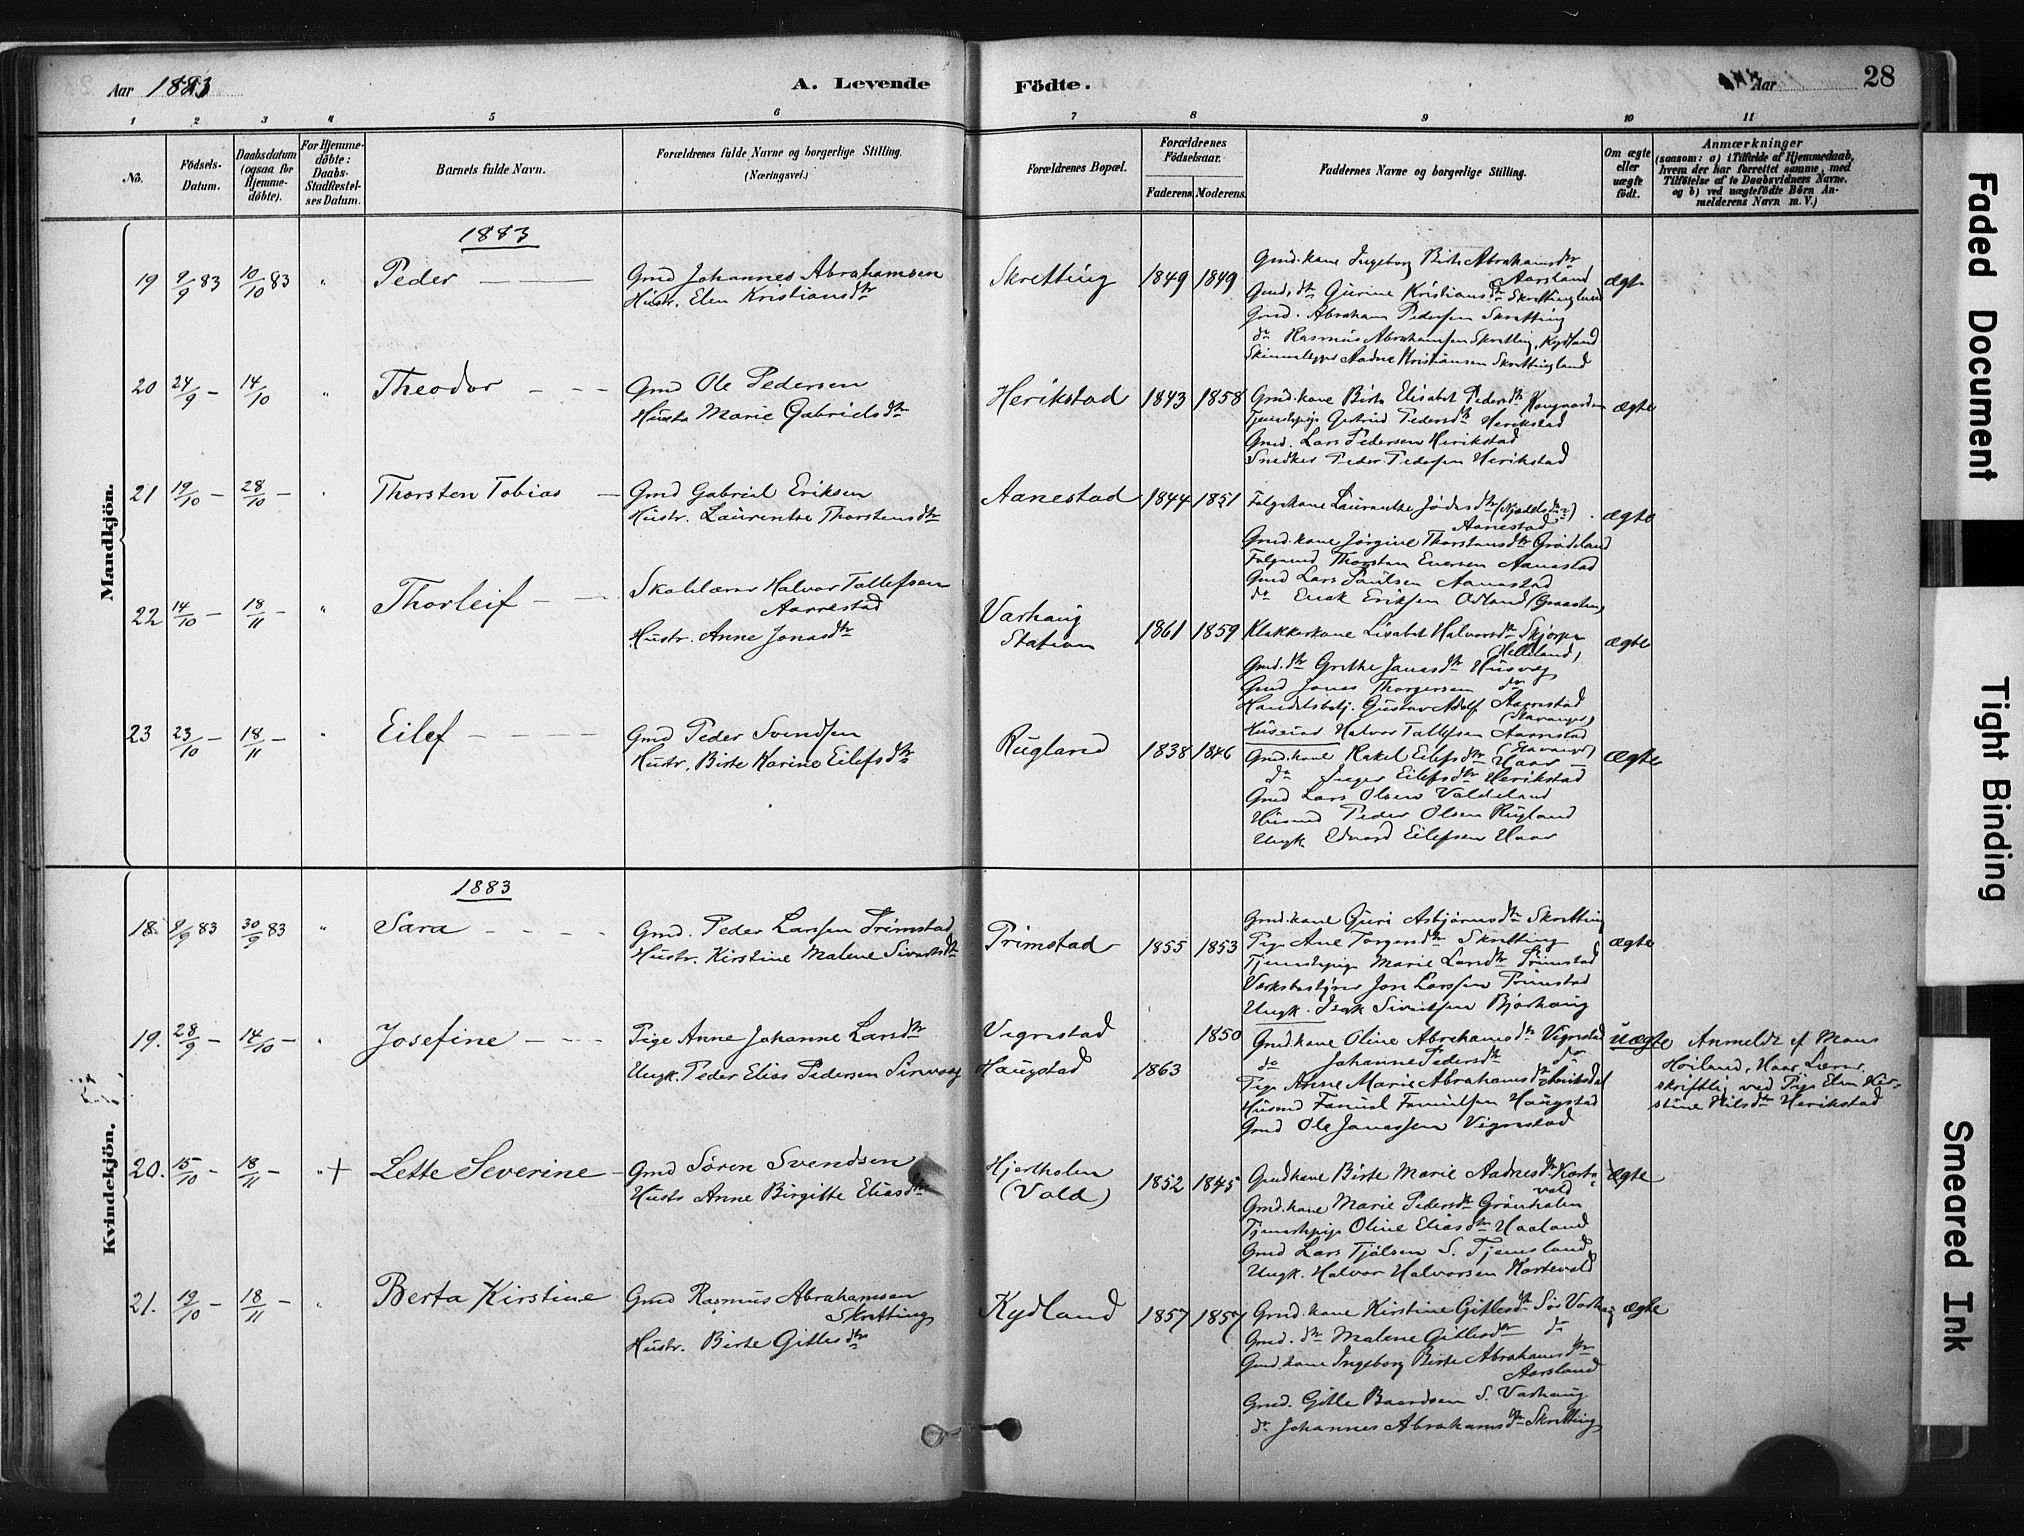 Aar 1883
A. Levende
Födte.
Aar
28
1 2 3 4 5 6 7 8 9 10 11
No.
Födsels-
Datum.
Daabsdatum
(ogsaa for
Hjemme-
döbte).
For Hjemme-
döbte:
Daabs-
Stadfæstel-
ses Datum.
Barnets fulde Navn.
Forældrenes fulde Navne og borgerlige Stilling.
(Næringsvei.)
Forældrenes Bopæl.
Forældrenes
Födselsaar.
Faderens
Moderens
Faddernes Navne og borgerlige Stilling.
Om ægte
eller
uægte
födt.
Anmærkninger
(saasom: a) i Tilfælde af Hjemmedaab,
hvem der har forrettet samme, med
Tilföielse af to Daabsvidners Navne,
og b) ved uægtefödte Börn An-
melderens Navn m. V.)
Mandkjön.
1883
19 9/9 83 10/10 83 " Peder
Gmd Johannes Abrahamsen
Hustr. Elen Kristiansdtr
Skretting 1849 1849
Gmd.kone Ingeborg Birte Abrahamsdtr
Aarsland
Gmd.dtr Gurine Kristiansdtr Skrettingland
Gmd. Abraham Pedersen Skretting
do Rasmus Abrahamsen Skretting, Kydland
Aadne Kristiansen Skrettingland
ægte
20 24/9 - 14/10 " Theodor
Gmd Ole Pedersen
Hustr Marie Gabrielsdtr
Herikstad 1843 1858
Gmd.kone Birte Elisabet Pedersdtr
Tjenestepige Gertrud Pedersdtr Herikstad
Gmd. Lars Pedersen Herikstad
Snedker Peder Pedersen Herikstad
ægte
21 19/10 - 28/10 - " Thorsten Tobias
Gmd Gabriel Eriksen
Hustr. Laurentse Thorstensdtr
Aanestad 1844 1851
Aanestad
Gmd.kone Jørgine Thorstensdtr Grødeland
Thorsten Evensen Aanestad
Gmd Lars Paulsen Aanestad
do Enok Eriksen Odland
ægte
22 14/10 - 18/11 - " Thorleif
Skolelærer Halvor Tallefsen
Aarrestad
Hustr. Anne Jonasdtr
Varhaug
Station 1861 1859
Klokkerkone Lisabet Halvorsdtr Skjorpe
Helleland,
Gmd.dtr Grethe Jonasdtr Husveg
Gmd Jonas Thorgersen do
Handelsbetj. Gustav Adolf Aarrestad
(Stavanger)
Husmd Halvor Tallefsen Aarrestad
(Stavanger)
ægte
23 23/10 - 18/11 - " Eilef
Gmd Peder Svendsen
Hustr. Birte Karine Eilefsdtr
Rugland 1838 1846
Gmd.kone Rakel Eilefsdtr Haar
do Inger Eilefsdtr Herikstad
Gmd Lars Olsen Valdeland
Husmd Peder Olsen Rugland
Ungk. Edvard Eilefsen Haar
ægte
Kvindekjön.
1883
18. 9/9 83 30/9 83 " Sara
Gmd. Peder Larsen Primstad
Hustr. Kirstine Malene Sivertsdtr
Primstad 1855 1853
Gmd.kone Guri Asbjørnsdtr Skretting
Pige Ane Torgersdtr Skretting
Tjenestepige Marie Larsdtr Primstad
Jon Larsen Primstad
Ungk. Isak Sivertsen Bjorhaug
ægte
19. 28/9 - 14/10 - " Josefine
Pige Anne Johanne Larsdtr
Ungk. Peder Elias Pedersen Sirevaag
Vigrestad
Haugstad
1863
1850
Gmd.kone Oline Abrahamsdtr Vigrestad
do Johanne Pedersdtr do
Pige Anne Marie Abrahamsdtr
Husmd Samuel Samuelsen Haugstad
Gmd Ole Jonassen Vigrestad
uægte
Anmeldt af Mons
Høiland, Haar, Lærer.
skriftlig ved Pige Elen Ker-
stine Nilsdtr Herikstad
20. 15/10 - 18/11 - "+ Lette Severine
Gmd Søren Svendsen
Hustr Anne Birgitte Eliasdtr
Hjerholen
(Vold) 1852 1845
Gmdkone Birte Marie Aadnesdtr Korte-
vold
Gmd.kone Marie Pedersdtr Grønholen
Tjenestepige Oline Eliasdtr Haaland
Gmd Lars Tjølsen S. Tjemsland
Ungk. Halvor Halvorsen Kortevold
ægte
21. 19/10 - 18/11 - " Berta Kirstine
Gmd Rasmus Abrahamsen
Skretting
Hustr. Birte Gitlesdtr
Kydland 1857 1857
Gmd.kone Kirstine Gitlesdtr Sør Varhaug
Gmd.dtr Malene Gitlesdtr do
Gmd.kone Ingeborg Birte Abrahamsdtr
Aarsland
Gmd. Gitle Baardsen S. Varhaug
do Johannes Abrahamsdtr Skretting
ægte
Faded Document
Tight Binding
Smeared Ink